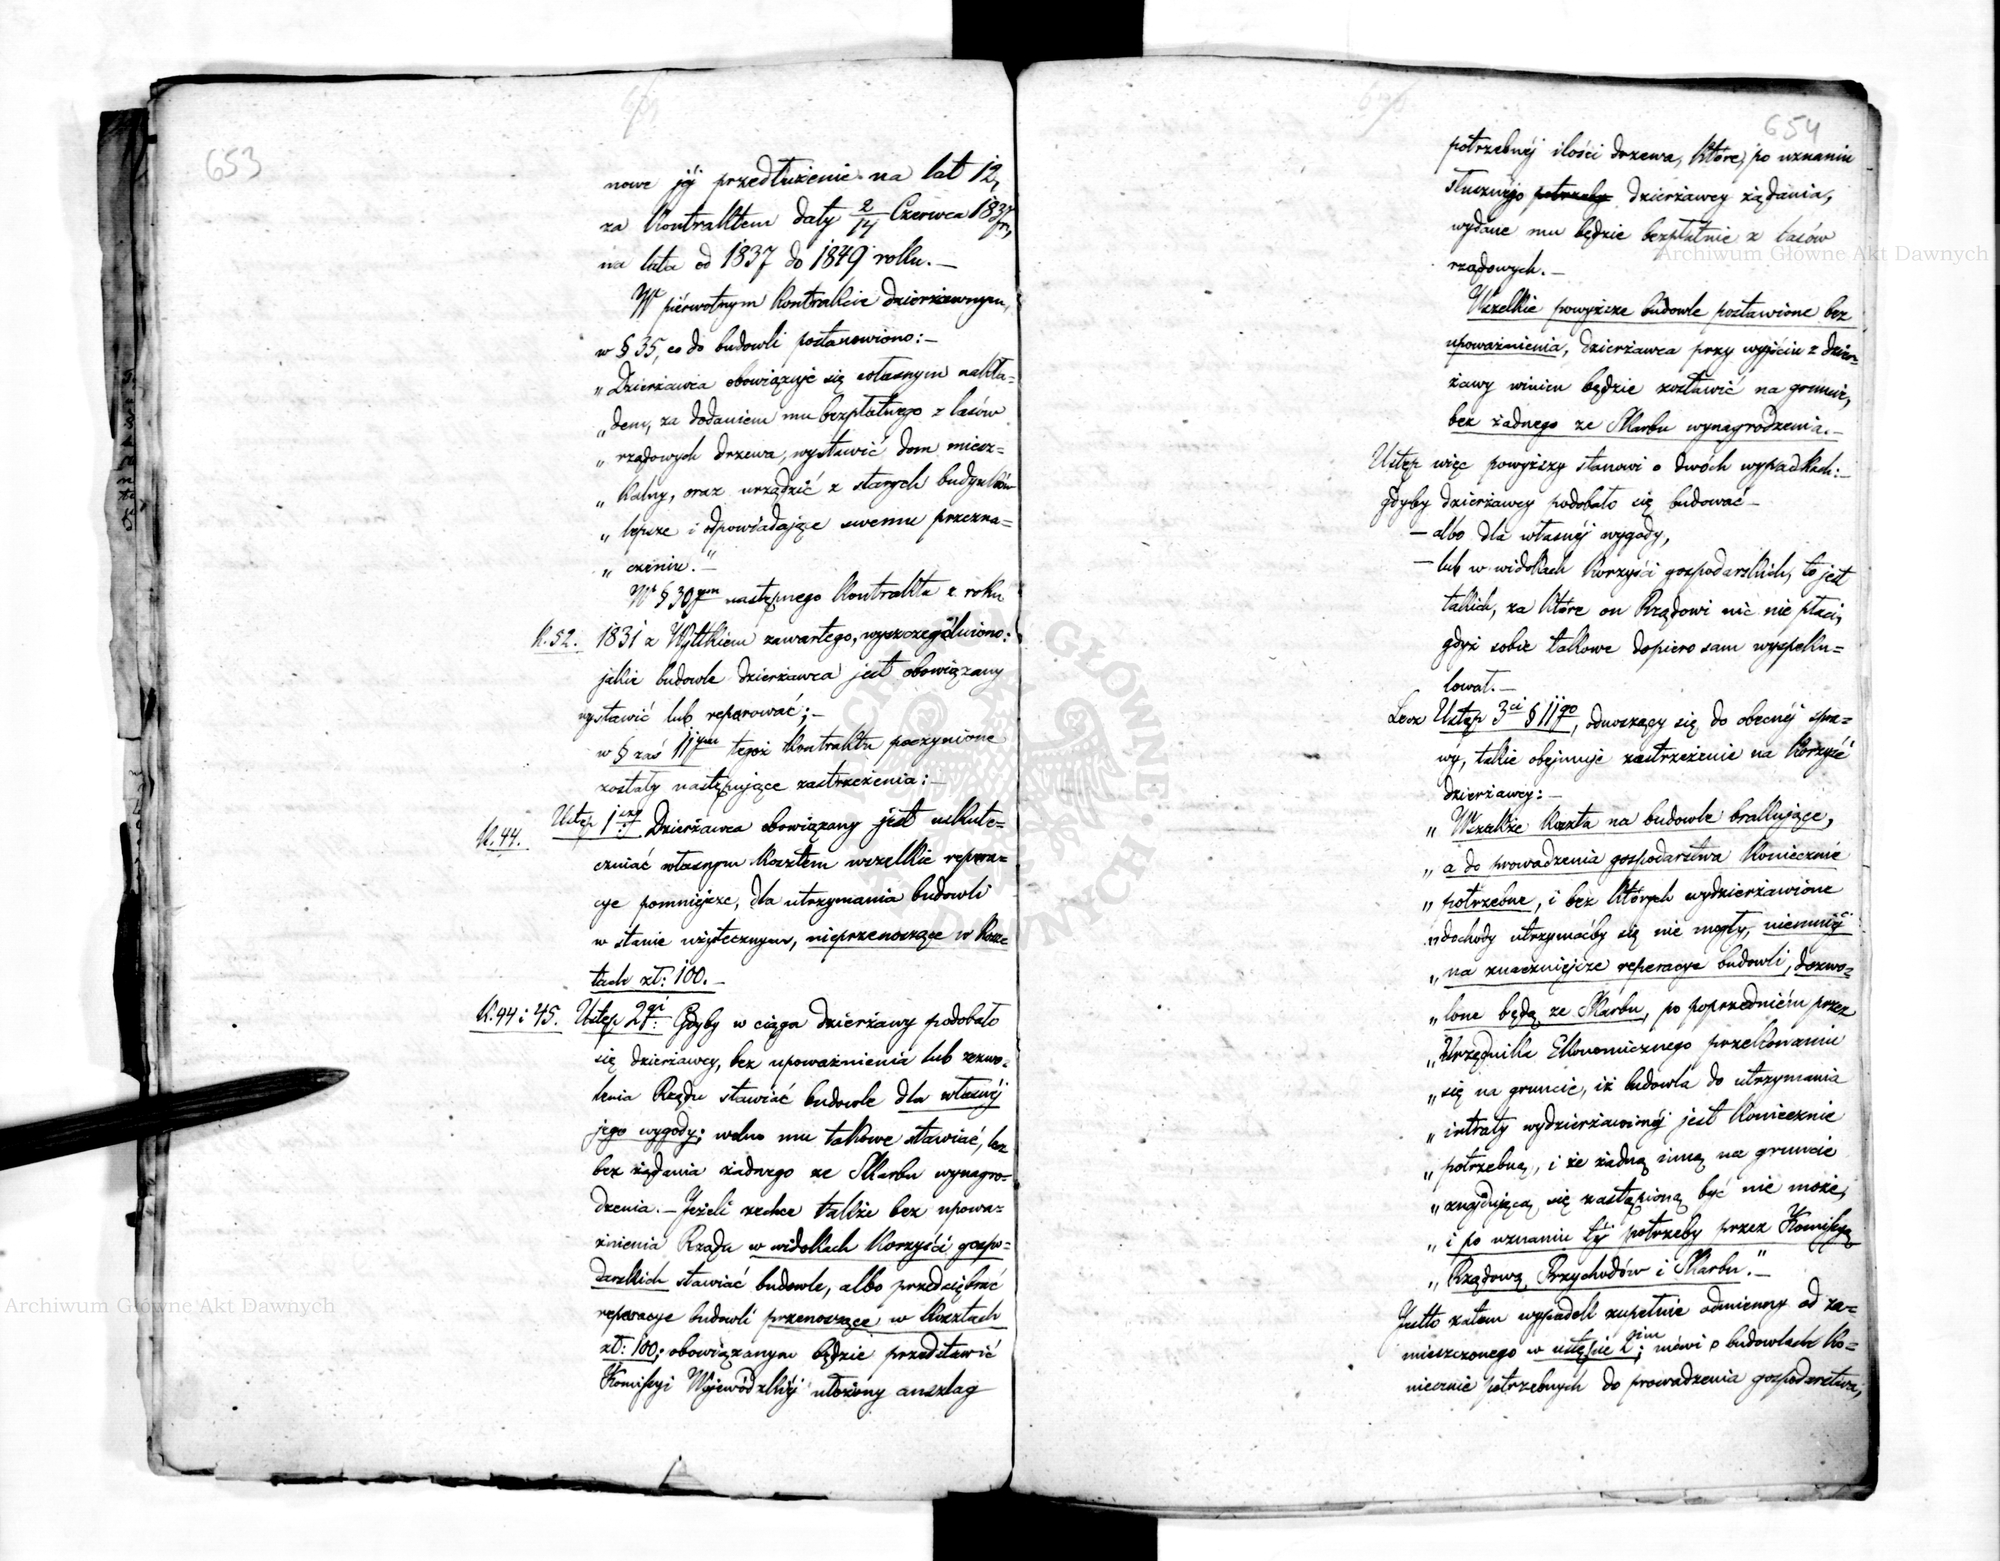 653
nowe jéj przedłużenie na lat 12,
za Kontraktem daty 2/14 Czerwca 1837 r.,
na lata od 1837 do 1849 roku. —
W piérwotnym Kontrakcie dzierżawnym,
w § 35, co do budowli postanowiono: —
„Dzierżawca obowiązuje się własnym nakła=
„dem, za dodaniem mu bezpłatnego z lasów
„rządowych drzewa, wystawić dom miesz=
„kalny, oraz urządzić z starych budynków
„lepsze i odpowiadające swemu przezna=
„czeniu.” —
W § 30ym następnego Kontraktu z roku
K. 52. 1831 z Wyttkiem zawartego, wyszczególniono:
jakie budowle dzierżawca jest obowiązany
wystawić lub reparować; —
w § zaś 11ym tegoż Kontraktu poczynione
zostały następujące zastrzeżenia: —
K. 44. Ustęp 1szy: Dzierżawca obowiązany jest uskute=
czniać własnym kosztem wszelkie repera=
cye pomniejsze, dla utrzymania budowli
w stanie użytecznym, nieprzenoszące w kosz=
tach zł: 100. —
K. 44 i 45. Ustęp 2gi: Gdyby w ciągu dzierżawy podobało
się dzierżawcy, bez upoważnienia lub zezwo=
lenia Rządu stawiać budowle dla własnéj
jego wygody; wolno mu takowe stawiać, lecz
bez żądania żadnego ze Skarbu wynagro=
dzenia. — Jeżeli zechce także bez upowa=
żnienia Rządu w widokach korzyści gospo=
darskich stawiać budowle, albo przedsiębrać
reperacye budowli przenoszące w kosztach
zł: 100; obowiązanym będzie przedstawić
Komissyi Wojewódzkiéj ułożony anszlag
654
potrzebnéj ilości drzewa, które, po uznaniu
słusznego potrzeby dzierżawcy żądania,
wydane mu będzie bezpłatnie z lasów
rządowych. —
Wszelkie powyższe budowle postawione bez
upoważnienia, dzierżawca przy wyjściu z dzier=
żawy winien będzie zostawić na gruncie,
bez żadnego ze Skarbu wynagrodzenia. —
Ustęp więc powyższy stanowi o dwóch wypadkach: —
gdyby dzierżawcy podobało się budować —
— albo dla własnéj wygody,
— lub w widokach korzyści gospodarskich, to jest
takich, za które on Rządowi nic nie płaci,
gdyż sobie takowe dopiero sam wyspeku=
lował. —
Lecz Ustęp 3ci § 11go, odnoszący się do obecnéj spra=
wy, takie obejmuje zastrzeżenie na korzyść
dzierżawcy: —
„Wszakże koszta na budowle brakujące,
„a do prowadzenia gospodarstwa koniecznie
„potrzebne, i bez których wydzierżawione
„dochody utrzymaćby się nie mogły, niemniéj
„na znaczniejsze reperacye budowli, dozwo=
„lone będą ze Skarbu, po poprzedniém przez
„Urzędnika Ekonomicznego przekonaniu
„się na gruncie, iż budowla do utrzymania
„intraty wydzierżawionéj jest koniecznie
„potrzebną, i że żadną inną na gruncie
„znajdującą się zastąpioną być nie może,
„i po uznaniu téj potrzeby przez Komissyą
„Rządową Przychodów i Skarbu.” —
Jestto zatem wypadek zupełnie odmienny od za=
mieszczonego w ustępie 2im; mówi o budowlach ko=
niecznie potrzebnych do prowadzenia gospodarstwa,
Archiwum Główne Akt Dawnych
Archiwum Główne Akt Dawnych